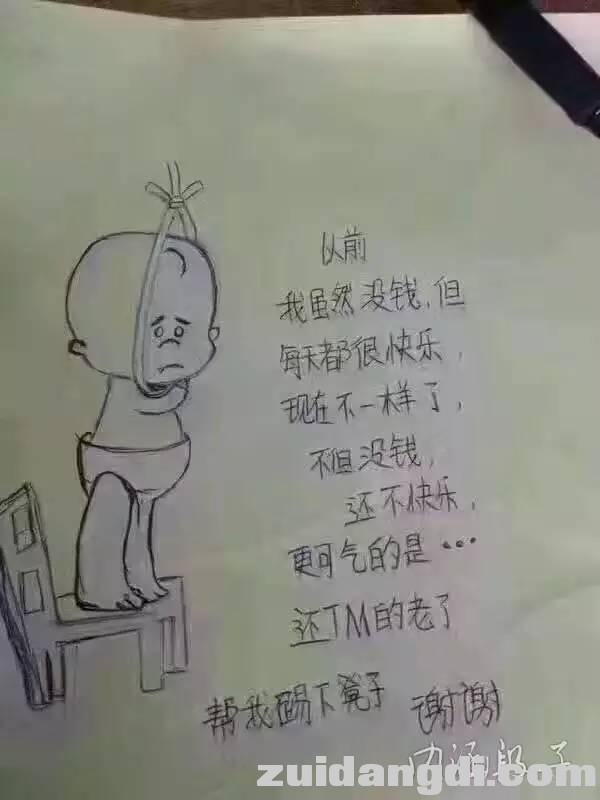 以前
我虽然没钱，但
每天都很快乐，
现在不一样了，
不但没钱，
还不快乐，
更可气的是···
还TM的老了
帮我踢下凳子 谢谢
内涵段子
zuidangdi.com